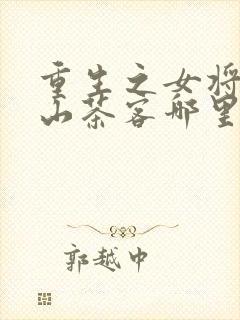 重生之女将
山茶客哪里
郭越中